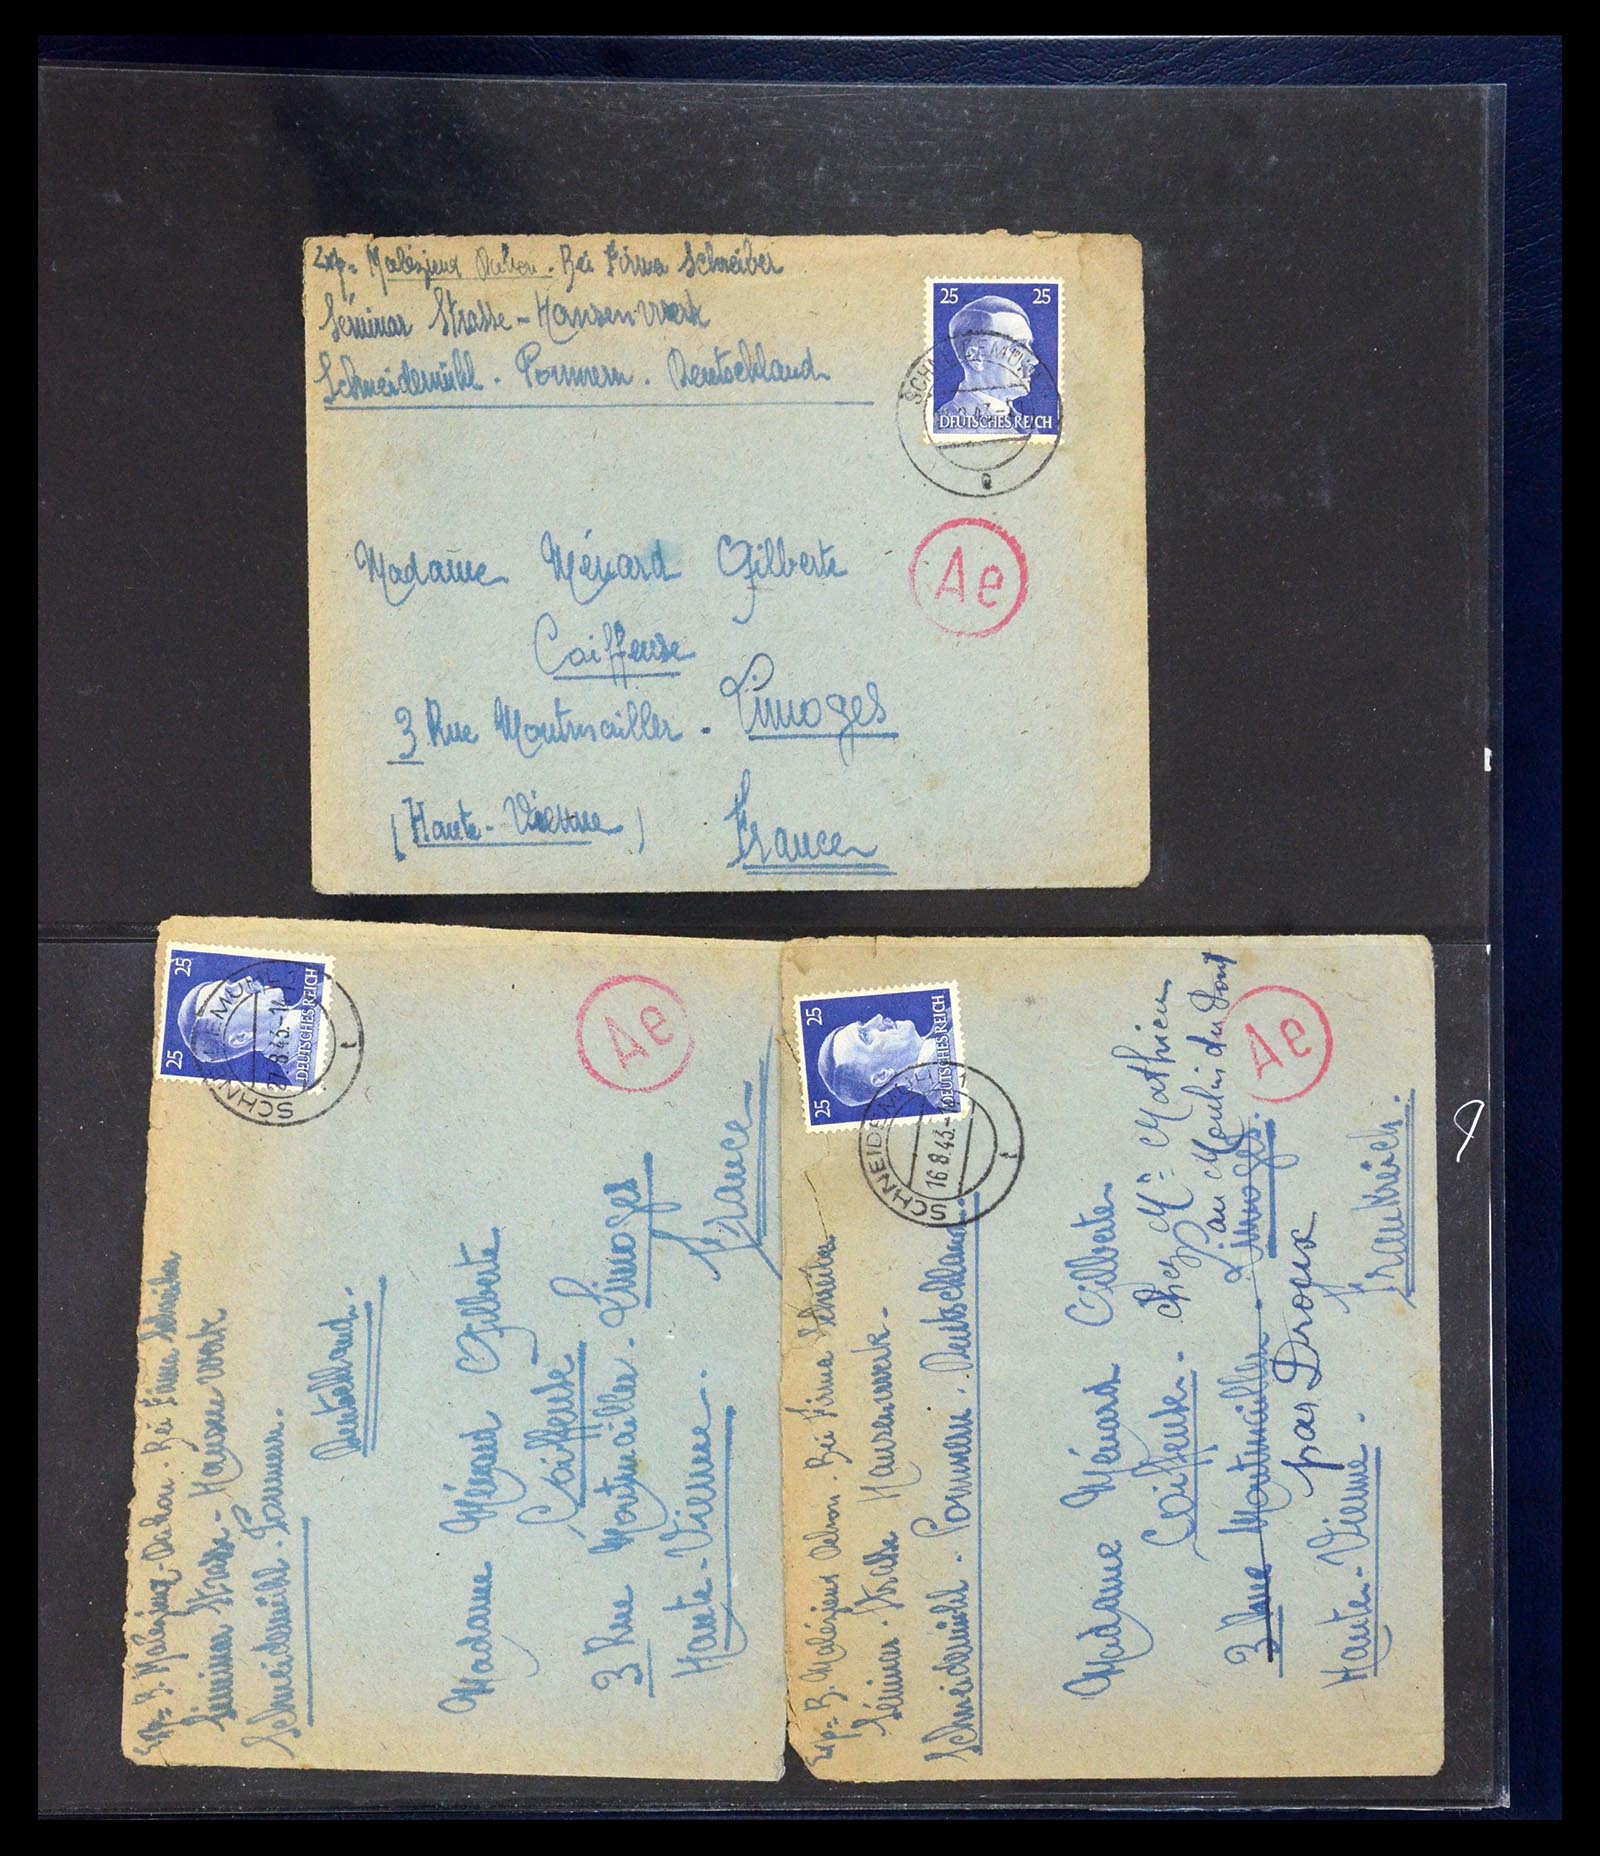 Exp= Malézieux Dehon. Bei Firma Schreiber
Séminar Strasse - Hansen Werk
Schneidemühl. Pommern. Deutschland
25 25
DEUTSCHES REICH
SCHNEIDEMÜHL
Ae
Madame Ménard Gilberte
Coiffeuse
3 Rue Montmailler. Limoges
(Haute-Vienne) France
25 25
DEUTSCHES REICH
SCHNEIDEMÜHL
27.8.43.-1
t
Ae
Exp= B. Malézieux-Dehon. Bei Firma Schreiber
Séminar Strasse - Hansen Werk
Schneidemühl. Pommern.
Deutschland.
Madame Ménard Gilberte
Coiffeuse
3 Rue Montmailler. Limoges
Haute-Vienne. France
25 25
DEUTSCHES REICH
SCHNEIDEMÜHL
16.8.43.-1
t
Ae
Exp= B. Malézieux Dehon. Bei Firma Schreiber
Séminar Strasse Hansenwerk-
Schneidemühl. Pommern. Deutschland.
Madame Ménard Gilberte
Coiffeuse. chez Mr Mathieu
au Moulin du Pont
3 Rue Montmailler. Limoges.
par Droux
Haute-Vienne. Frankreich.